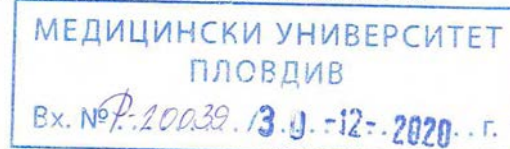 МЕДИЦИНСКИ УНИВЕРСИТЕТ
ПЛОВДИВ
Вх. №Р-20039./30.-12-.2020..г.